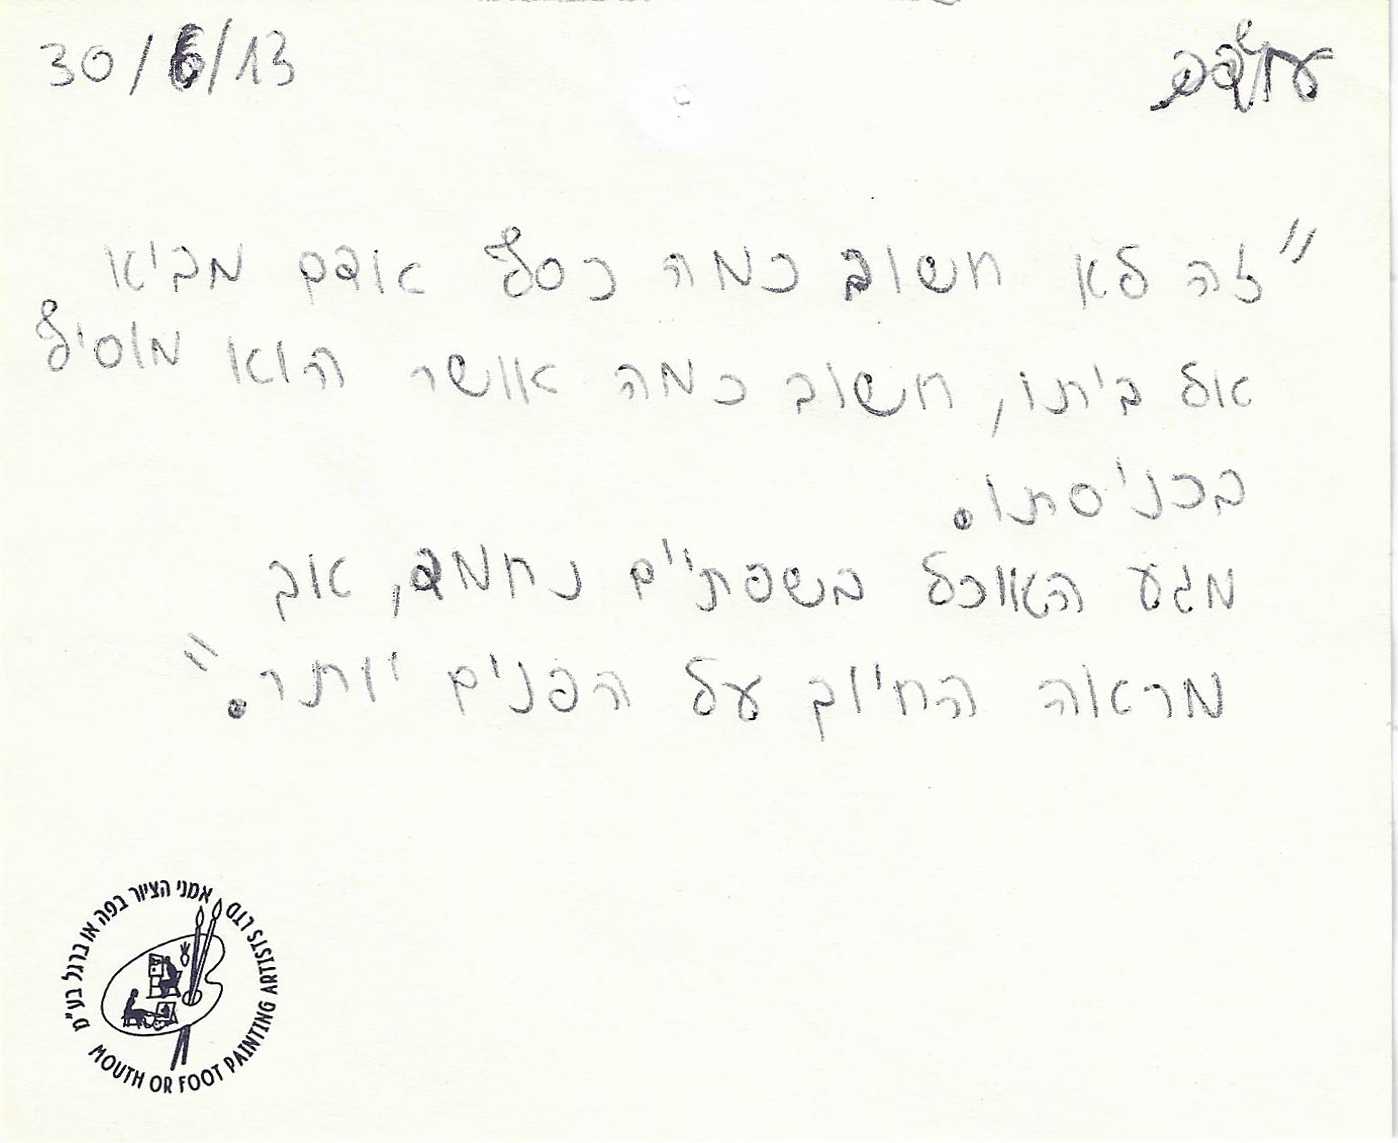 30/6/13
"זה לא חשוב כמה כסף אדם מביא
אל ביתו, חשוב כמה אושר הוא מוסיף
בכניסתו.
מגע האוכל בשפתיים נחמד, אך
מראה החיוך על הפנים יותר."
אמני הציור בפה או ברגל בע"מ
MOUTH OR FOOT PAINTING ARTISTS LTD